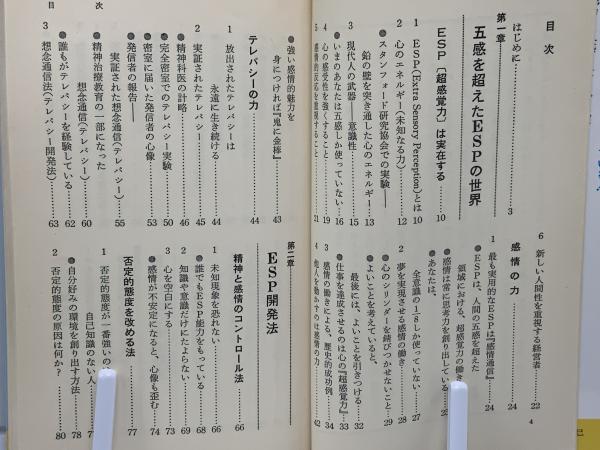 目次
はじめに……3
第一章
五感を超えたESPの世界
ESP〔超感覚力〕は実在する……10
1 ESP(Extra Sensory Perception)とは……10
2 心のエネルギー(未知なる力)……12
●スタンフォード研究協会での実験——
鉛の壁を突き通した心のエネルギー……13
3 現代人の武器——意識性……15
●いまのあなたは五感しか使っていない……16
4 心の感受性を強くすること……19
5 感情的反応を重視すること……21
6 新しい人間性を重視する経営者……22
感情の力……24
1 最も実用的なESPは『感情通信』……24
●ESPは、人間の五感を超えた
領域における、超感覚力の働き
●感情は常に思考力を創り出している
●あなたは、
全意識の1/8しか使っていない……27
2 夢を実現させる感情の働き……28
●心のシリンダーを錆びつかせないこと……29
●よいことを考えていると、
最後には、よいことを引きつける……32
●仕事を達成させるのは心の『超感覚力』……33
3 感情の働きによる、歴史的成功例……34
4 他人を動かすのは感情の力……42
4
目次
●強い感情的魅力を
身につければ『鬼に金棒』……43
テレパシーの力……44
1 放出されたテレパシーは
永遠に生き続ける……44
2 実証されたテレパシー……45
●精神科医の計略……46
●完全密室でのテレパシー実験……50
●密室に届いた発信者の心像……53
●発信者の報告——
実証された想念通信(テレパシー)……55
●精神治療教育の一部になった
想念通信(テレパシー)……60
●誰もがテレパシーを経験している……62
3 想念通信法(テレパシー開発法)……63
第二章
ESP開発法
精神と感情のコントロール法……66
1 未知現象を恐れない……66
●誰でもESP能力をもっている……68
2 知識や意識だけにたよらない……69
3 心を空白にする……73
●感情が不安定になると、心像も歪む……74
否定的態度を改める法……77
1 否定的態度が一番強いの
自己知識のない人
●自分好みの環境を創り出す方法……78
2 否定的態度の原因は何か？……80